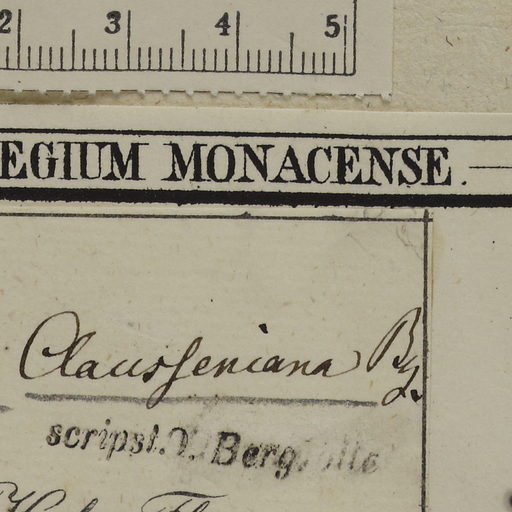 2 3 4 5
EGIUM MONACENSE.
Clausseniana Bg.
scripst. O. Berg.